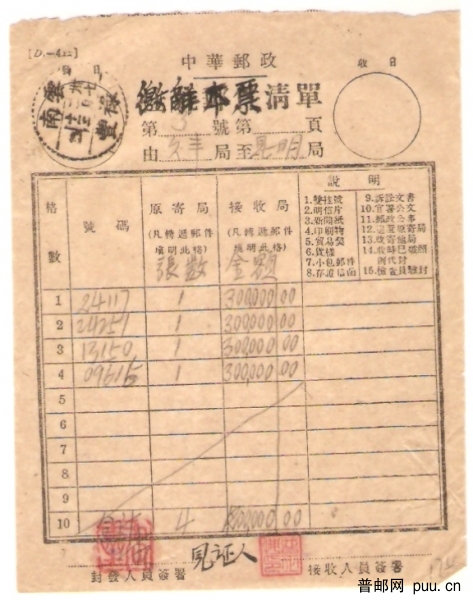 [D.-412]
中華郵政
發日
收日
清單
第 3 號第 頁
由 文丰 局至 昆明 局
雲南
格數
號碼
原寄局
(凡轉遞郵件填明此格)
張數
接收局
(凡轉遞郵件填明此格)
金額
說明
1.雙掛號
2.明信片
3.新聞紙
4.印刷物
5.貿易契
6.貨樣
7.小包郵件
8.存證信函
9.訴訟文書
10.官署公文
11.郵政公事
12.退還原寄局
13.改寄他局
15.檢查員驗封
1 24117 1 300,000 00
2 24251 1 300,000 00
3 13150 1 300,000 00
4 09615 1 300,000 00
5
6
7
8
9
10 4 00
見証人
封發人員簽署
接收人員簽署
普邮网 puu.cn